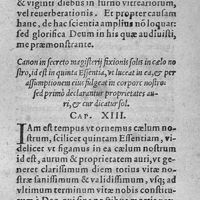 & viginti diebus in furno vitreariorum,
vel reuerberationis. Et propter causam
hanc, de hac scientia amplius nõ loquar:
sed glorifica Deum in his quæ audiuisti,
me præmonstrante.
Canon in secreto magisterij fixionis solis in cælo no
stro, id est in quinta Essentia, vt luceat in ea, & per
assumptionem eius fulgeat in corpore nostro:
sed primò declarantur proprietates auri,
& cur dicatur sol.
CAP. XIII.
IAm est tempus vt ornemus cælum no-
strum, scilicet quintam Essentiam, vi-
delicet vt figamus in ea cælum nostrum
id est, aurum & proprietatem auri, vt ge-
neret claritatem diem totius vitæ no-
stræ sanissimum & validissimum, vsq; ad
vltimum terminum vitæ nobis constitu-